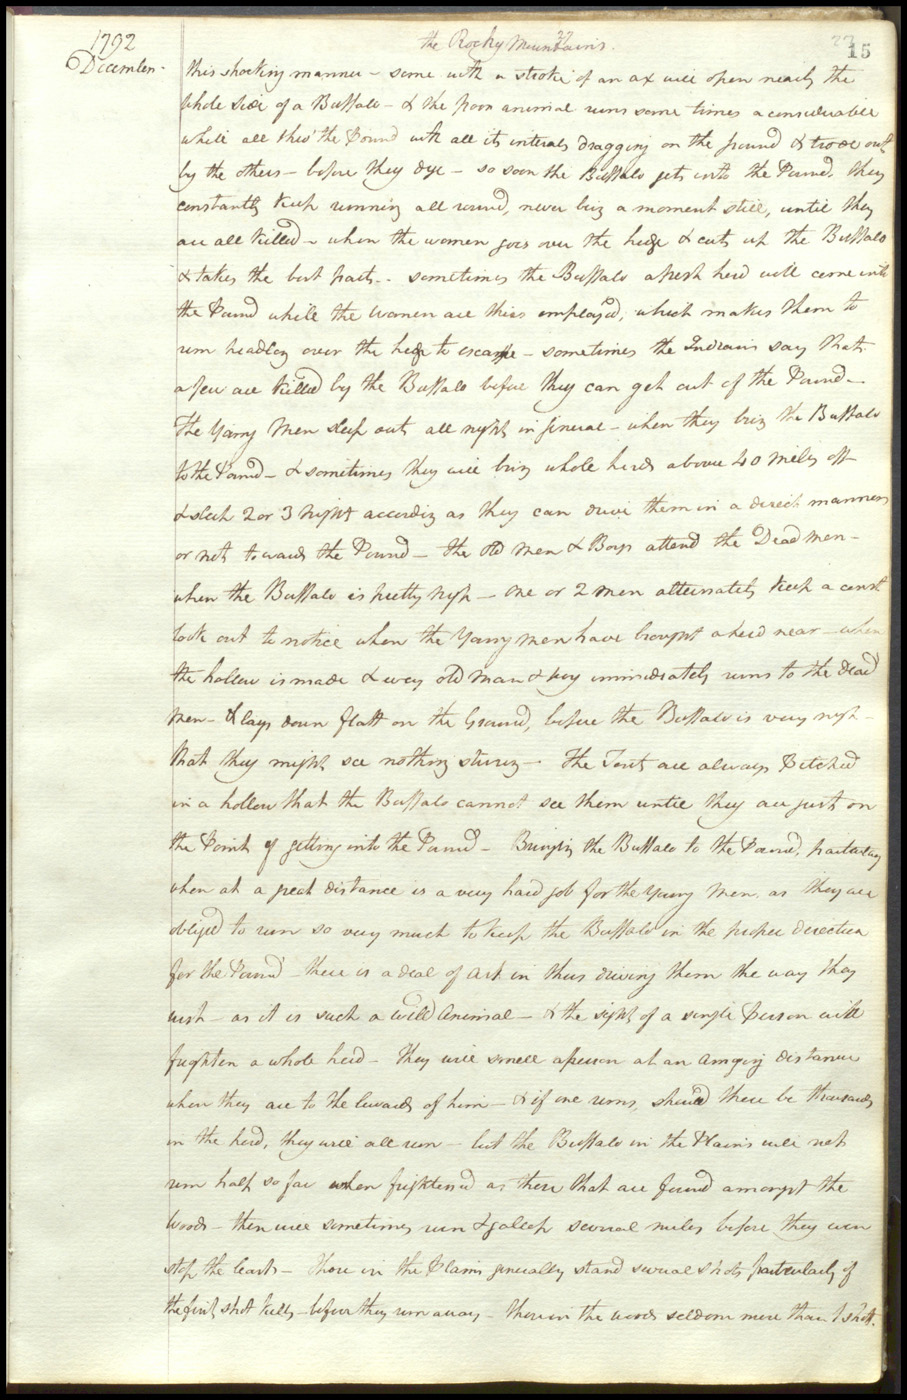 1792
the Rocky Mountains.
15
December.
this shocking manner – some with a stroke of an ax will open nearly the
whole side of a Buffalo – & the poor animal runs some times a considerable
while all thro' the Pound with all its interals dragging on the ground & trode out
by the others – before they dye – so soon the Buffalo gets into the Pound, they
constantly keep running all round, never being a moment still, until they
are all killed – when the women goes over the hedge & cuts up the Buffalo
& takes the best parts.. sometimes the Buffalo afresh herd will come into
the Pound while the women are thus employed, which makes them to
run headlong over the hedge to escape – sometimes the Indians say that
a few are killed by the Buffalo before they can get out of the Pound –
The Young Men sleep out all night in general – when they bring the Buffalo
to the Pound – & sometimes they will bring whole herds above 40 miles off
& sleep 2 or 3 night according as they can drive them in a direct manner
or not towards the Pound – the old men & Boys attend the Dead men –
when the Buffalo is pretty nigh – one or 2 men alternately keep a const
look out to notice when the Young men have brought a herd near – when
the hollow is made & every old man & boy immediately runs to the dead
men – & lays down flatt on the Ground, before the Buffalo is very nigh –
that they might see nothing stiring – The Tents are always Pitched
in a hollow that the Buffalo cannot see them until they are just on
the Point of getting into the Pound – Bringing the Buffalo to the Pound, particularly
when at a great distance is a very hard job for the young Men, as they are
obliged to run so very much to keep the Buffalo in the proper direction
for the Pound there is a deal of art in thus driving them the way they
wish – as it is such a wild animal – & the sight of a single Person will
frighten a whole herd – they will smell a person at an amazing distance
when they are to the lewards of him – & if one runs, should there be thousands
in the herd, they will all run – but the Buffalo in the Plains will not
run half so far when frightened as those that are found amongst the
Woods – then will sometimes run & gallop several miles before they even
stop the least – those in the Plains generally stand several shots particularly if
the first shot kills – before they run away – those in the woods seldom more than 1 shot.